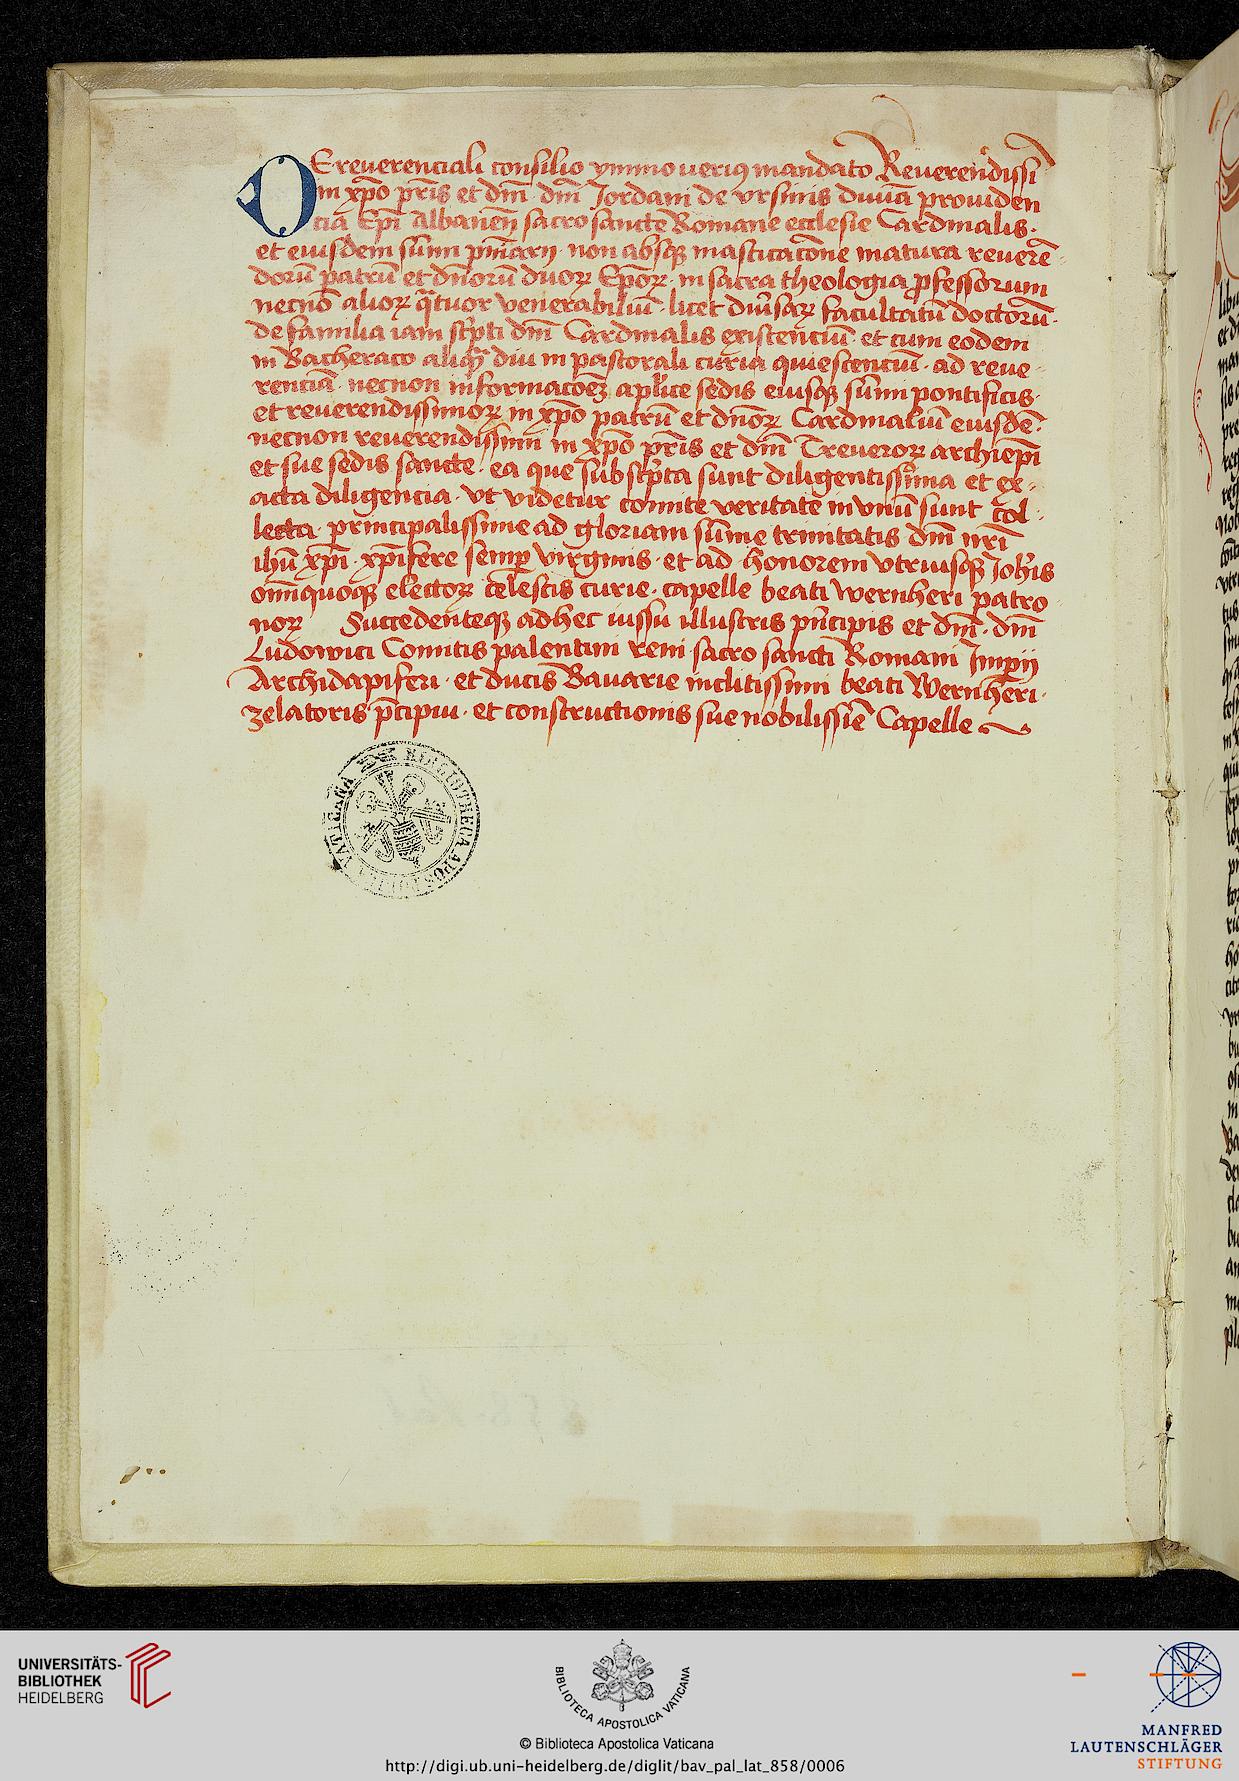 DE reuerenciali consilio ymmo verius mandato Reuerendissi
in xp̄o pr̄is et dn̄i dn̄i Jordani de vrsinis diuīa prouiden
cia Ep̄i Albanen̄ sacro sancte Romane ecclesie Cardinalis·
et eiusdem sūmi pn̄iarij · non absqꝫ masticacōne matura reuerē
dorū patrū et dn̄orū duoꝝ Ep̄oꝝ · in sacra theologia ꝓfessorum
necnō alioꝝ qͣtuor venerabiliū · licet diu̓saꝝ facultatū doctorū·
de familia iam sc̓pti dn̄i Cardinalis existenciū · et cum eodem
in Bacheraco aliqͣ diu in pastorali curia quiescenciū · ad reue
renciā · necnon informacōeꝫ aplice sedis eiusqꝫ sūmi pontificis·
et reuerendissimoꝝ in xp̄o patrū et dn̄oꝝ Cardinaliū eiusdē·
necnon reuerendissimi in xp̄o pr̄is et dn̄i Treueroꝝ archiep̄i
et sue sedis sancte · ea que subsc̓pta sunt diligentissima et ex
acta diligencia · vt videtur comite veritate in vnū sunt col
lecta · principalissime ad gloriam sūme trinitatis dn̄i nr̄i
ihū xp̄i · xp̄ifere semꝑ virginis · et ad honorem vtriusqꝫ Joh̓is
om̄iquoqꝫ electoꝝ celestis curie · capelle beati wernheri patro
noꝝ Succedenteqꝫ adhec iussu illustris pn̓cipis et dn̄i · dn̄i
Ludowici Comitis palentini reni sacro sancti Romani Imꝑij
Archidapiferi · et ducis Bauarie inclitissimi beati Wernheri·
zelatoris p̓cipui · et constructionis sue nobilissīe Capelle
BIBLIOTHECA APOSTOLICA VATICANA
UNIVERSITÄTS-
BIBLIOTHEK
HEIDELBERG
BIBLIOTECA APOSTOLICA VATICANA
© Biblioteca Apostolica Vaticana
http://digi.ub.uni-heidelberg.de/diglit/bav_pal_lat_858/0006
MANFRED
LAUTENSCHLÄGER
STIFTUNG